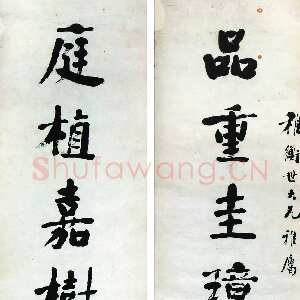 稚衡世大兄雅属
品重圭璋
庭植嘉樹
Shufawang.CN